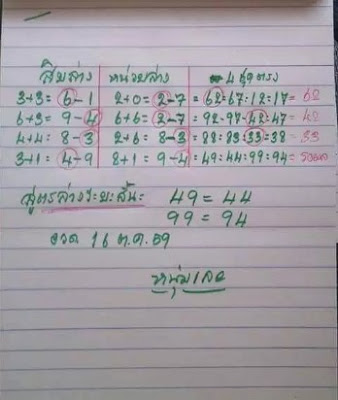 สิบล่าง หน่วยล่าง 4 ชุดตรง
3+3= 6-1 2+0= 2-7 = 62=67=12=17= 62
6+3= 9-4 6+6= 2-7 = 92=97=42=47= 42
4+4= 8-3 2+6= 8-3 = 88=83=33=38= 33
3+1= 4-9 8+1= 9-4 = 49=44=99=94= รอผล
สูตรล่างระยะสั้น= 49 = 44
99 = 94
งวด 16 ต.ค. 59
หนุ่มเลย